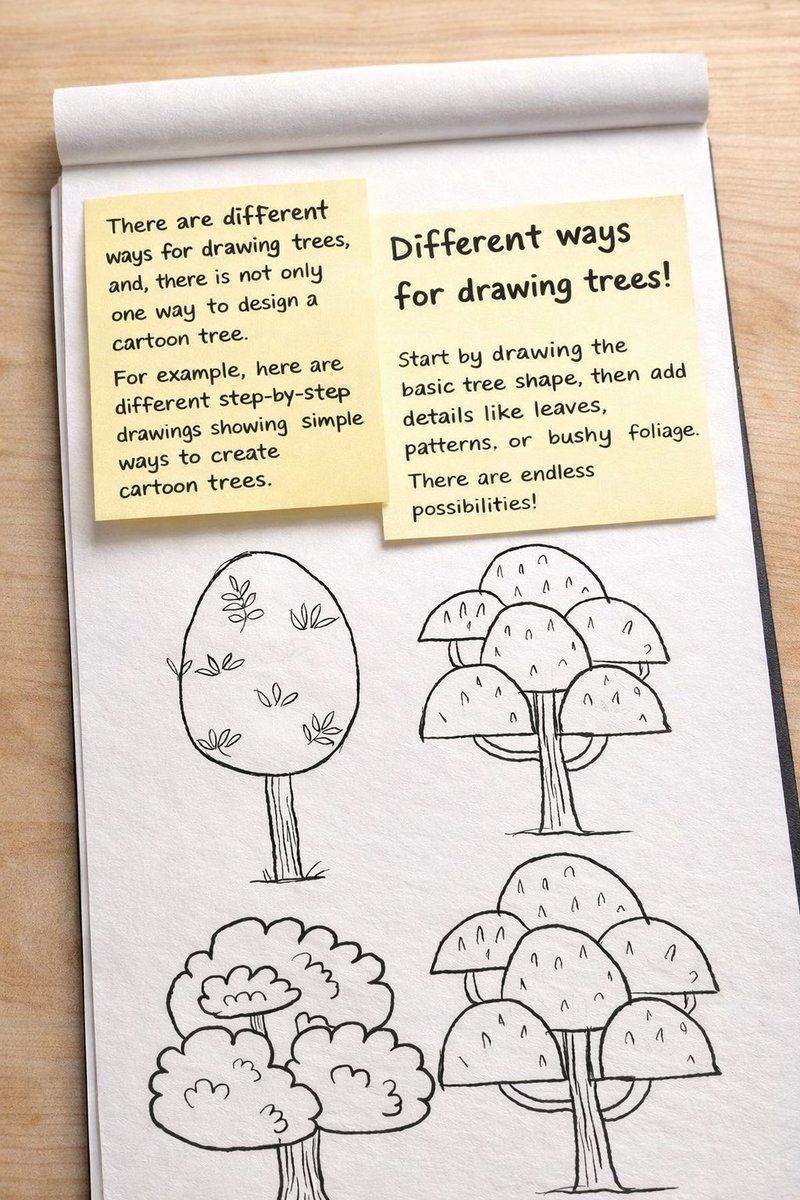 There are different
ways for drawing trees,
and, there is not only
one way to design a
cartoon tree.
For example, here are
different step-by-step
drawings showing simple
ways to create
cartoon trees.
Different ways
for drawing trees!
Start by drawing the
basic tree shape, then add
details like leaves,
patterns, or bushy foliage.
There are endless
possibilities!